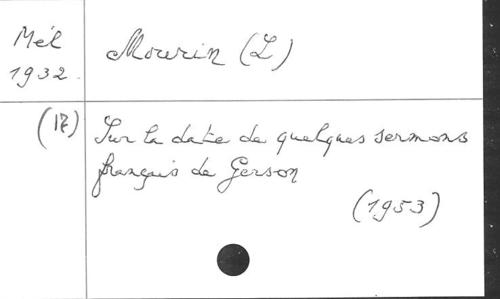 Mél
1932.
Mourin (L)
(17)
Sur la date de quelques sermons
français de Gerson
(1953)